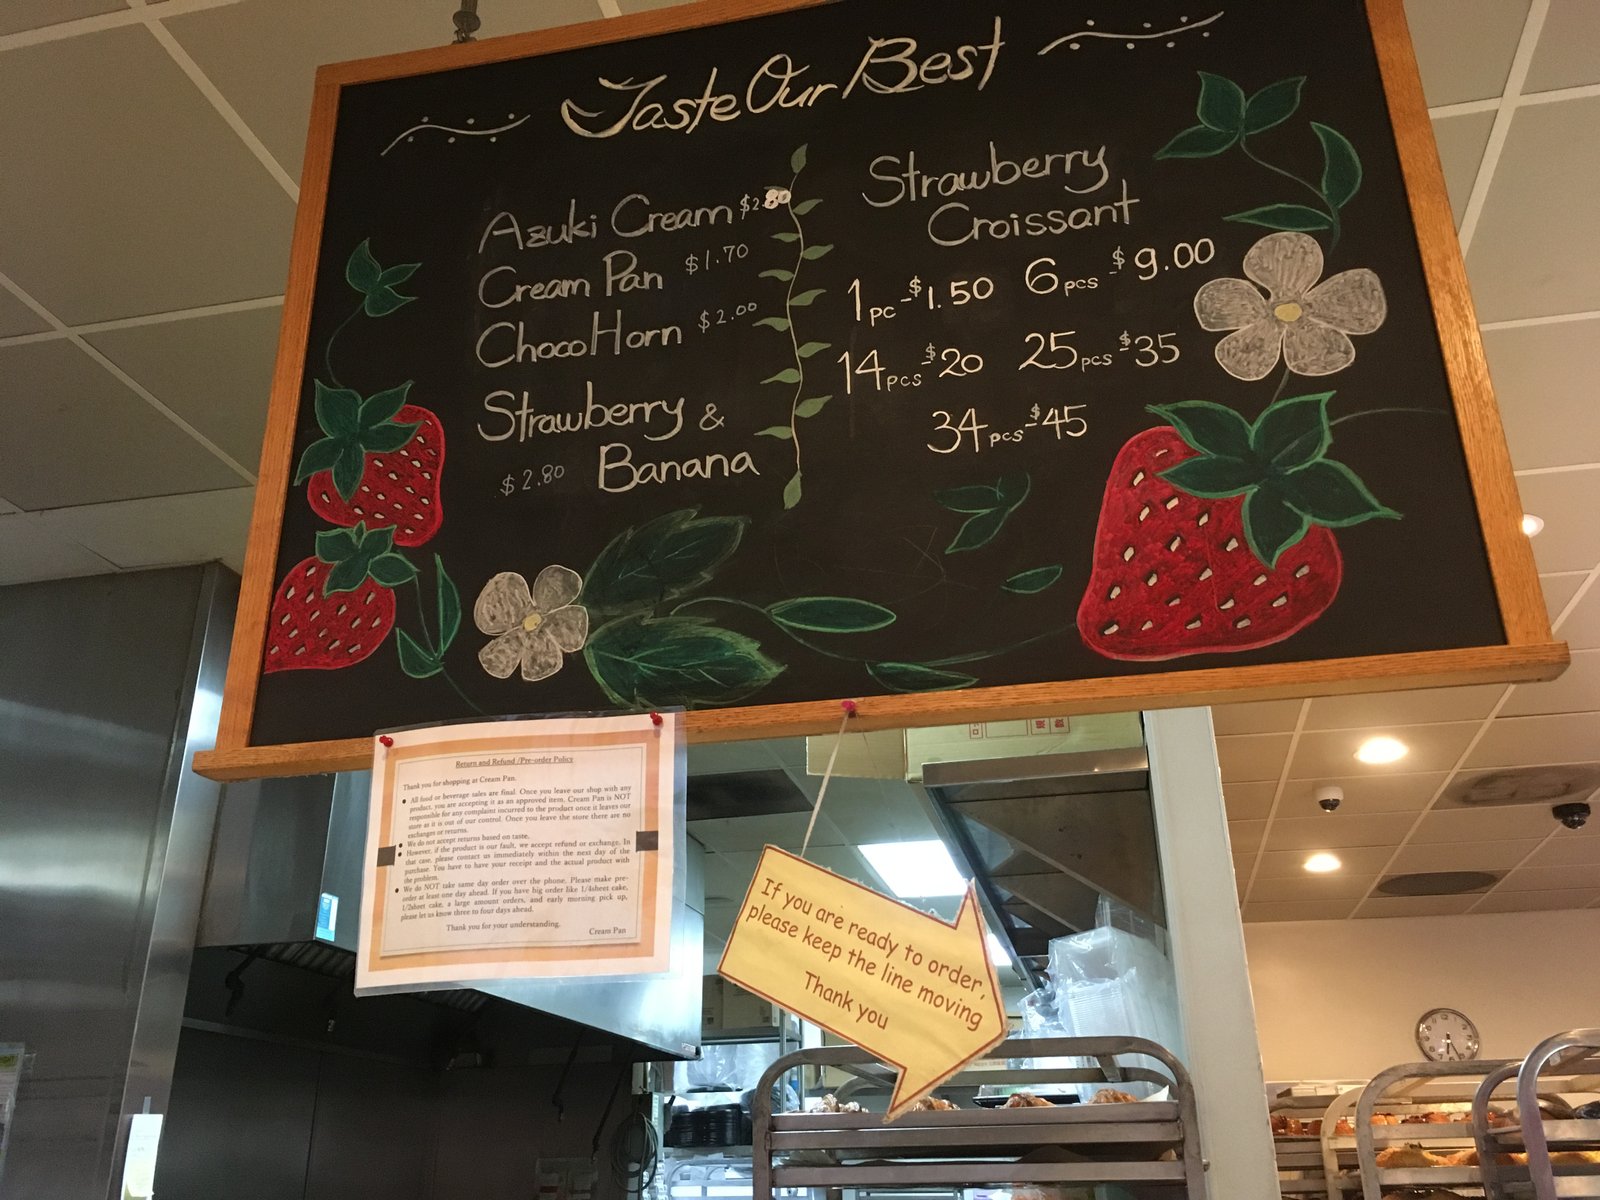 Taste Our Best
Azuki Cream $2.80
Cream Pan $1.70
Choco Horn $2.00
Strawberry &
$2.80 Banana
Strawberry
Croissant
1pc-$1.50 6pcs-$9.00
14pcs-$20 25pcs-$35
34pcs-$45
Return and Refund /Pre-order Policy
Thank you for shopping at Cream Pan.
• All food or beverage sales are final. Once you leave our shop with any
product, you are accepting it as an approved item. Cream Pan is NOT
responsible for any complaint incurred to the product once it leaves our
store as it is out of our control. Once you leave the store there are no
exchanges or returns.
• We do not accept returns based on taste.
• However, if the product is our fault, we accept refund or exchange. In
that case, please contact us immediately within the next day of the
purchase. You have to have your receipt and the actual product with
the problem.
• We do NOT take same day order over the phone. Please make pre-
order at least one day ahead. If you have big order like 1/4sheet cake,
1/2sheet cake, a large amount orders, and early morning pick up,
please let us know three to four days ahead.
Thank you for your understanding.
Cream Pan
If you are ready to order,
please keep the line moving
Thank you